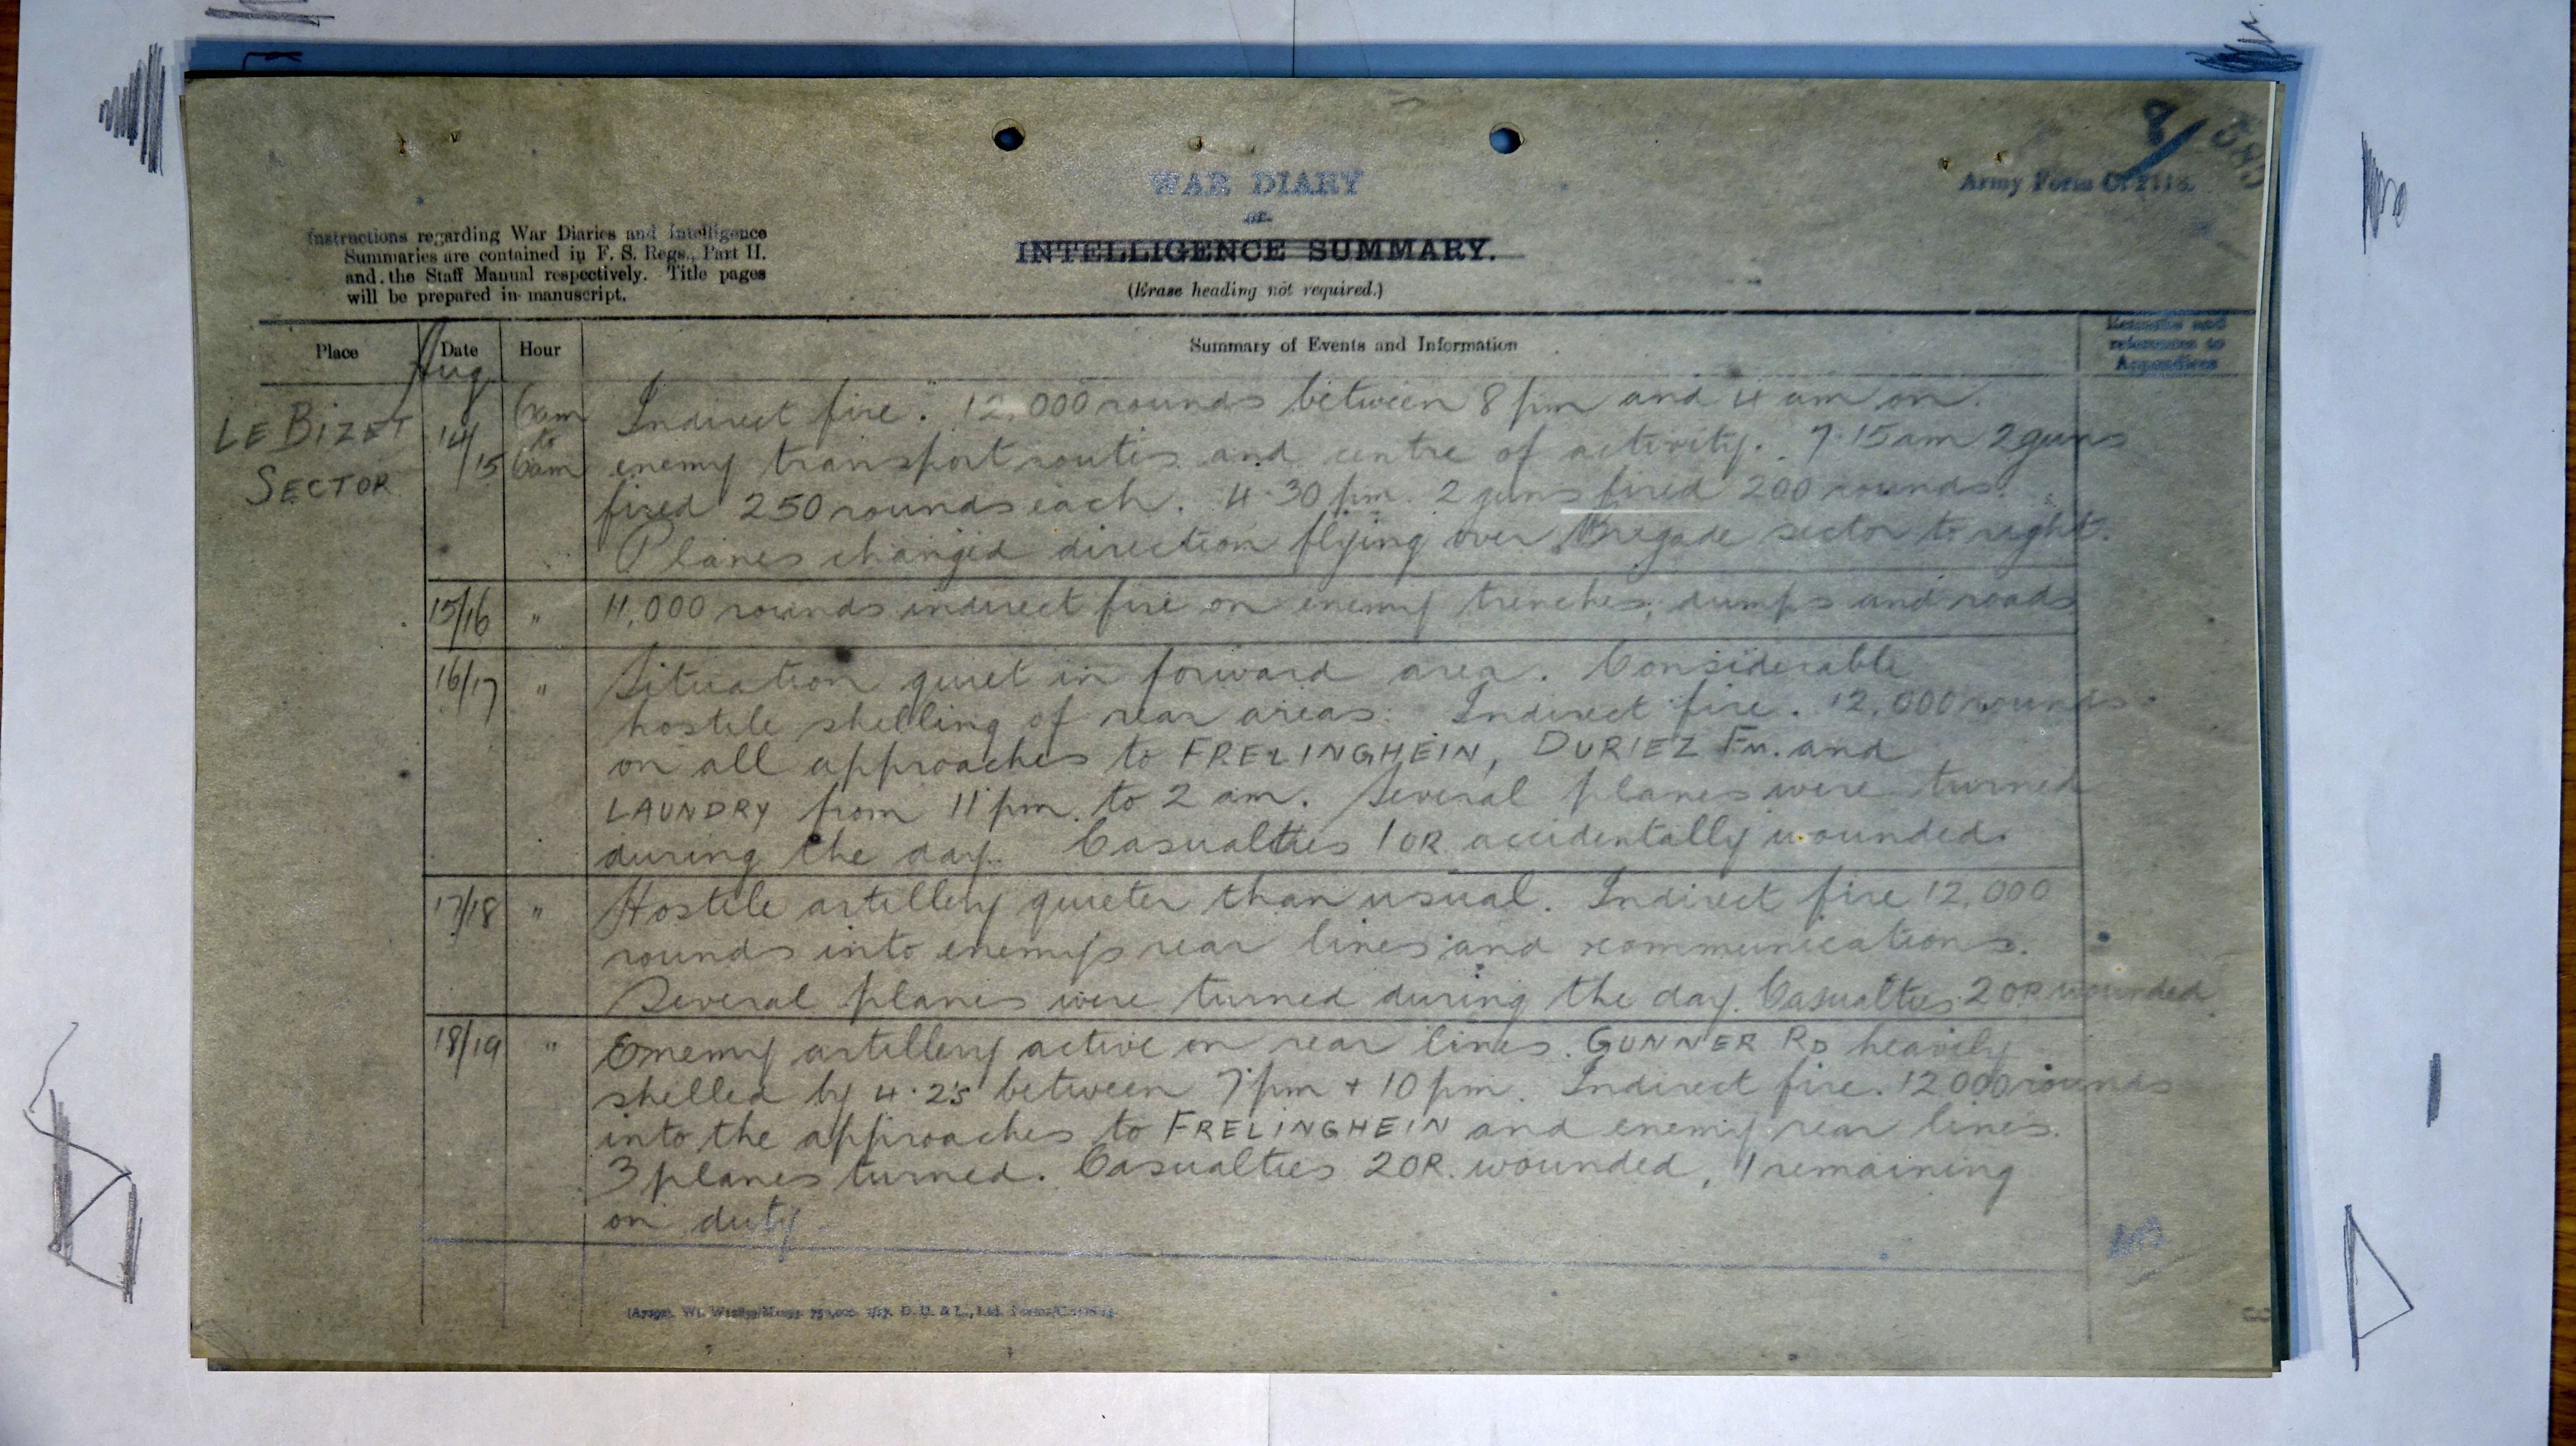 WAR DIARY
or
INTELLIGENCE SUMMARY.
(Erase heading not required.)
Army Form C. 2118.
Instructions regarding War Diaries and Intelligence
Summaries are contained in F. S. Regs., Part II.
and the Staff Manual respectively. Title pages
will be prepared in manuscript.
Place Date Hour Summary of Events and Information
Remarks and
references to
Appendices
Aug
LE BIZET
SECTOR
14/15 6am to 6am
Indirect fire. 12,000 rounds between 8 pm and 4 am on
enemy transport routes and centre of activity. 7.15am 2 guns
fired 250 rounds each. 4.30 pm 2 guns fired 200 rounds.
Planes changed direction flying over Brigade sector to right.
15/16 " 11,000 rounds indirect fire on enemy trenches, dumps and roads
16/17 " Situation quiet in forward area. Considerable
hostile shelling of rear areas. Indirect fire. 12,000 rounds
on all approaches to FRELINGHEIN, DURIEZ Fm. and
LAUNDRY from 11 pm. to 2 am. Several planes were turned
during the day. Casualties 1 OR accidentally wounded.
17/18 " Hostile artillery quieter than usual. Indirect fire 12,000
rounds into enemys rear lines and communications.
Several planes were turned during the day. Casualties 2 OR wounded
18/19 " Enemy artillery active on rear lines. GUNNER RD heavily
shelled by 4.2s between 7 pm + 10 pm. Indirect fire. 12000 rounds
into the approaches to FRELINGHEIN and enemy rear lines.
3 planes turned. Casualties 2 OR. wounded, 1 remaining
on duty